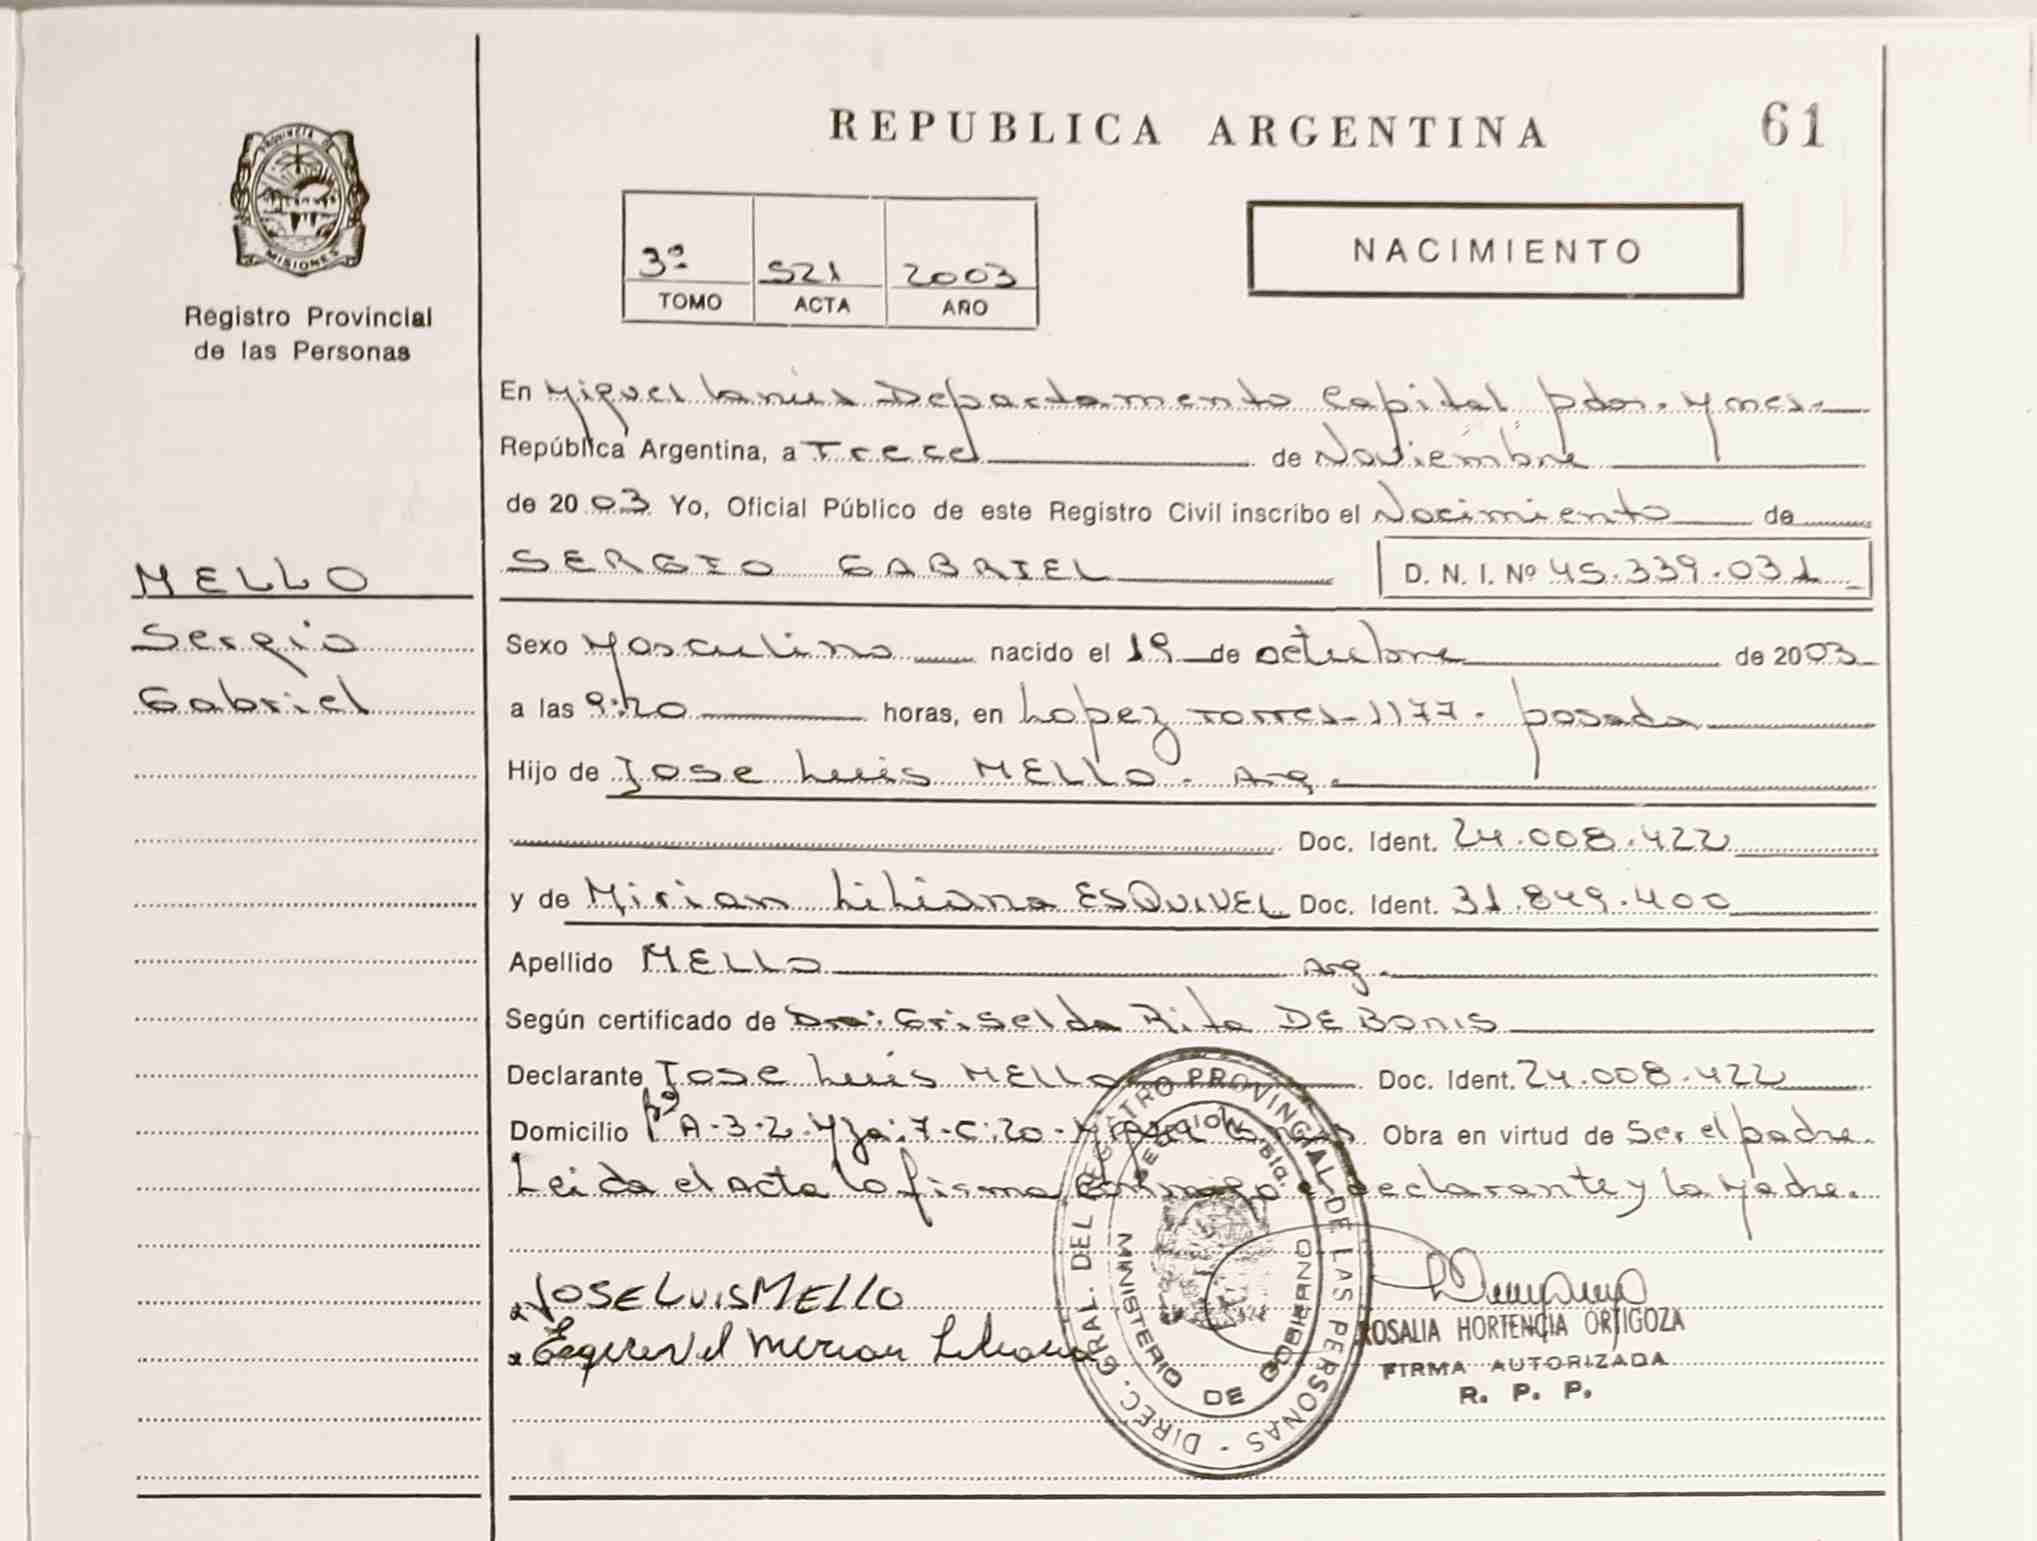 REPUBLICA ARGENTINA
61
PROVINCIA DE
MISIONES
Registro Provincial
de las Personas
3ª 521 2003
TOMO ACTA AÑO
NACIMIENTO
En Miguel Lanús Departamento Capital pdas. y mnes.
República Argentina, a Trece de Noviembre
de 2003 Yo, Oficial Público de este Registro Civil inscribo el Nacimiento de
MELLO
SERGIO GABRIEL D. N. I. Nº 45.339.031
Sergio
Gabriel
Sexo Masculino nacido el 19 de octubre de 2003
a las 9:20 horas, en Lopez Torres 1177. posada
Hijo de Jose Luis MELLO. Arg.
Doc. Ident. 24.008.422
y de Mirian Liliana ESQUIVEL Doc. Ident. 31.849.400
Apellido MELLO Arg.
Según certificado de Dra: Griselda Rita DE BONIS
Declarante Jose Luis MELLO Doc. Ident. 24.008.422
Domicilio Bº A-3-2. Mza: 7-C: 20- Miguel Lanus Obra en virtud de Ser el padre.
Leida el Acta la firma conmigo el declarante y la Madre.
JOSE LUIS MELLO
Esquivel Mirian Liliana
DIREC. GRAL. DEL REGISTRO PROVINCIAL DE LAS PERSONAS
MINISTERIO DE GOBIERNO
ROSALIA HORTENCIA ORTIGOZA
FIRMA AUTORIZADA
R. P. P.